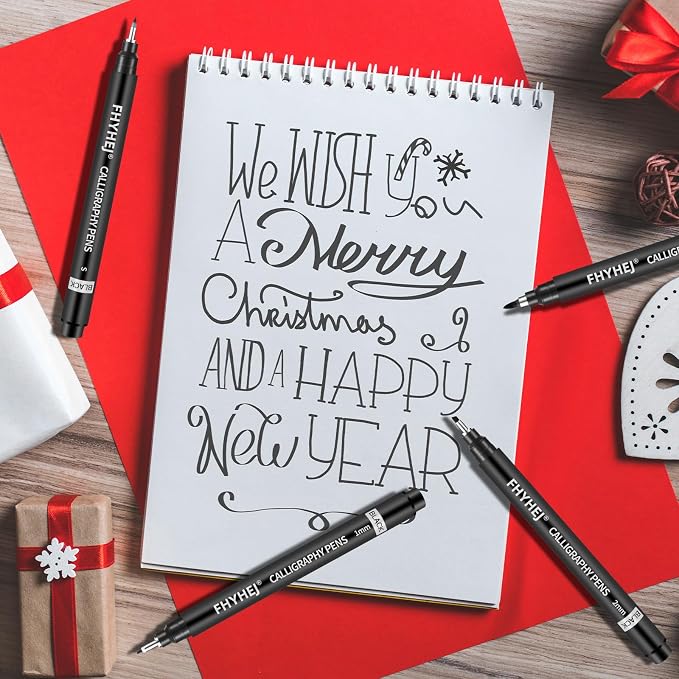 We WISH You
A Merry
Christmas
AND A HAPPY
New YEAR
FHYHEJ® CALLIGRAPHY PENS S BLACK
FHYHEJ® CALLIGRAPHY
FHYHEJ® CALLIGRAPHY PENS 1mm BLACK
FHYHEJ® CALLIGRAPHY PENS 2mm BLACK